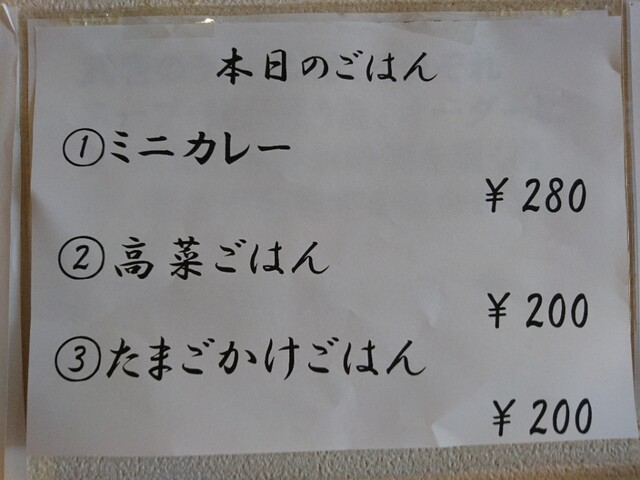 本日のごはん
①ミニカレー
¥280
②高菜ごはん
¥200
③たまごかけごはん
¥200